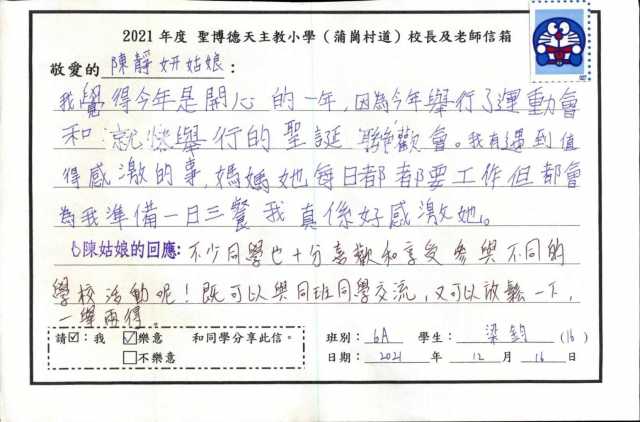 2021 年度 聖博德天主教小學(蒲崗村道)校長及老師信箱
敬愛的 陳靜妍姑娘:
我覺得今年是開心的一年,因為今年舉行了運動會
和就來舉行的聖誕聯歡會。我有遇到值
得感激的事,媽媽她每日都都要工作但都會
為我準備一日三餐我真係好感激她。
陳姑娘的回應: 不少同學也十分喜歡和享受參與不同的
學校活動呢!既可以與同班同學交流,又可以放鬆一下,
一舉兩得。
請☑:我 ☑樂意 和同學分享此信。
□不樂意
班別: 6A 學生: 梁鈞 (16)
日期: 2021 年 12 月 16 日